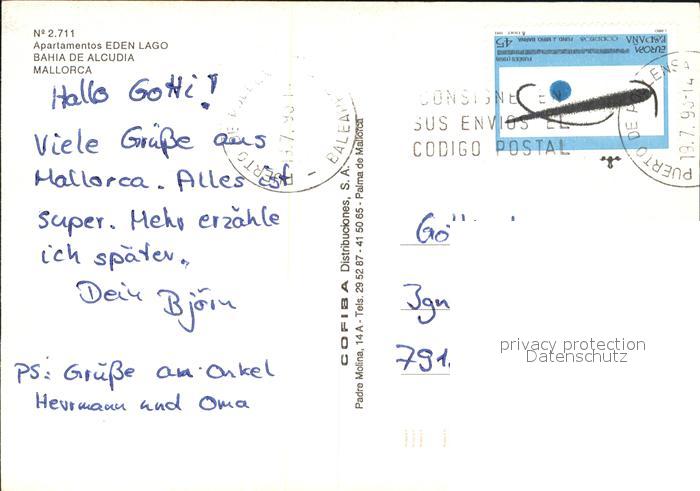 Nº 2.711
Apartamentos EDEN LAGO
BAHIA DE ALCUDIA
MALLORCA
Hallo Gotti!
Viele Grüße aus
Mallorca. Alles ist
super. Mehr erzähle
ich später.
Dein Björn
PS: Grüße an Onkel
Herrmann und Oma
COFIBA Distribuciones, S. A.
Padre Molina, 14 A - Tels. 29 52 87 - 41 50 65 - Palma de Mallorca
BALEARES
19.7.93
CONSIGNE EN
SUS ENVIOS EL
CODIGO POSTAL
EUROPA
ESPAÑA
45
CORREOS
PUERTO DE
19.7.93
791
privacy protection
Datenschutz